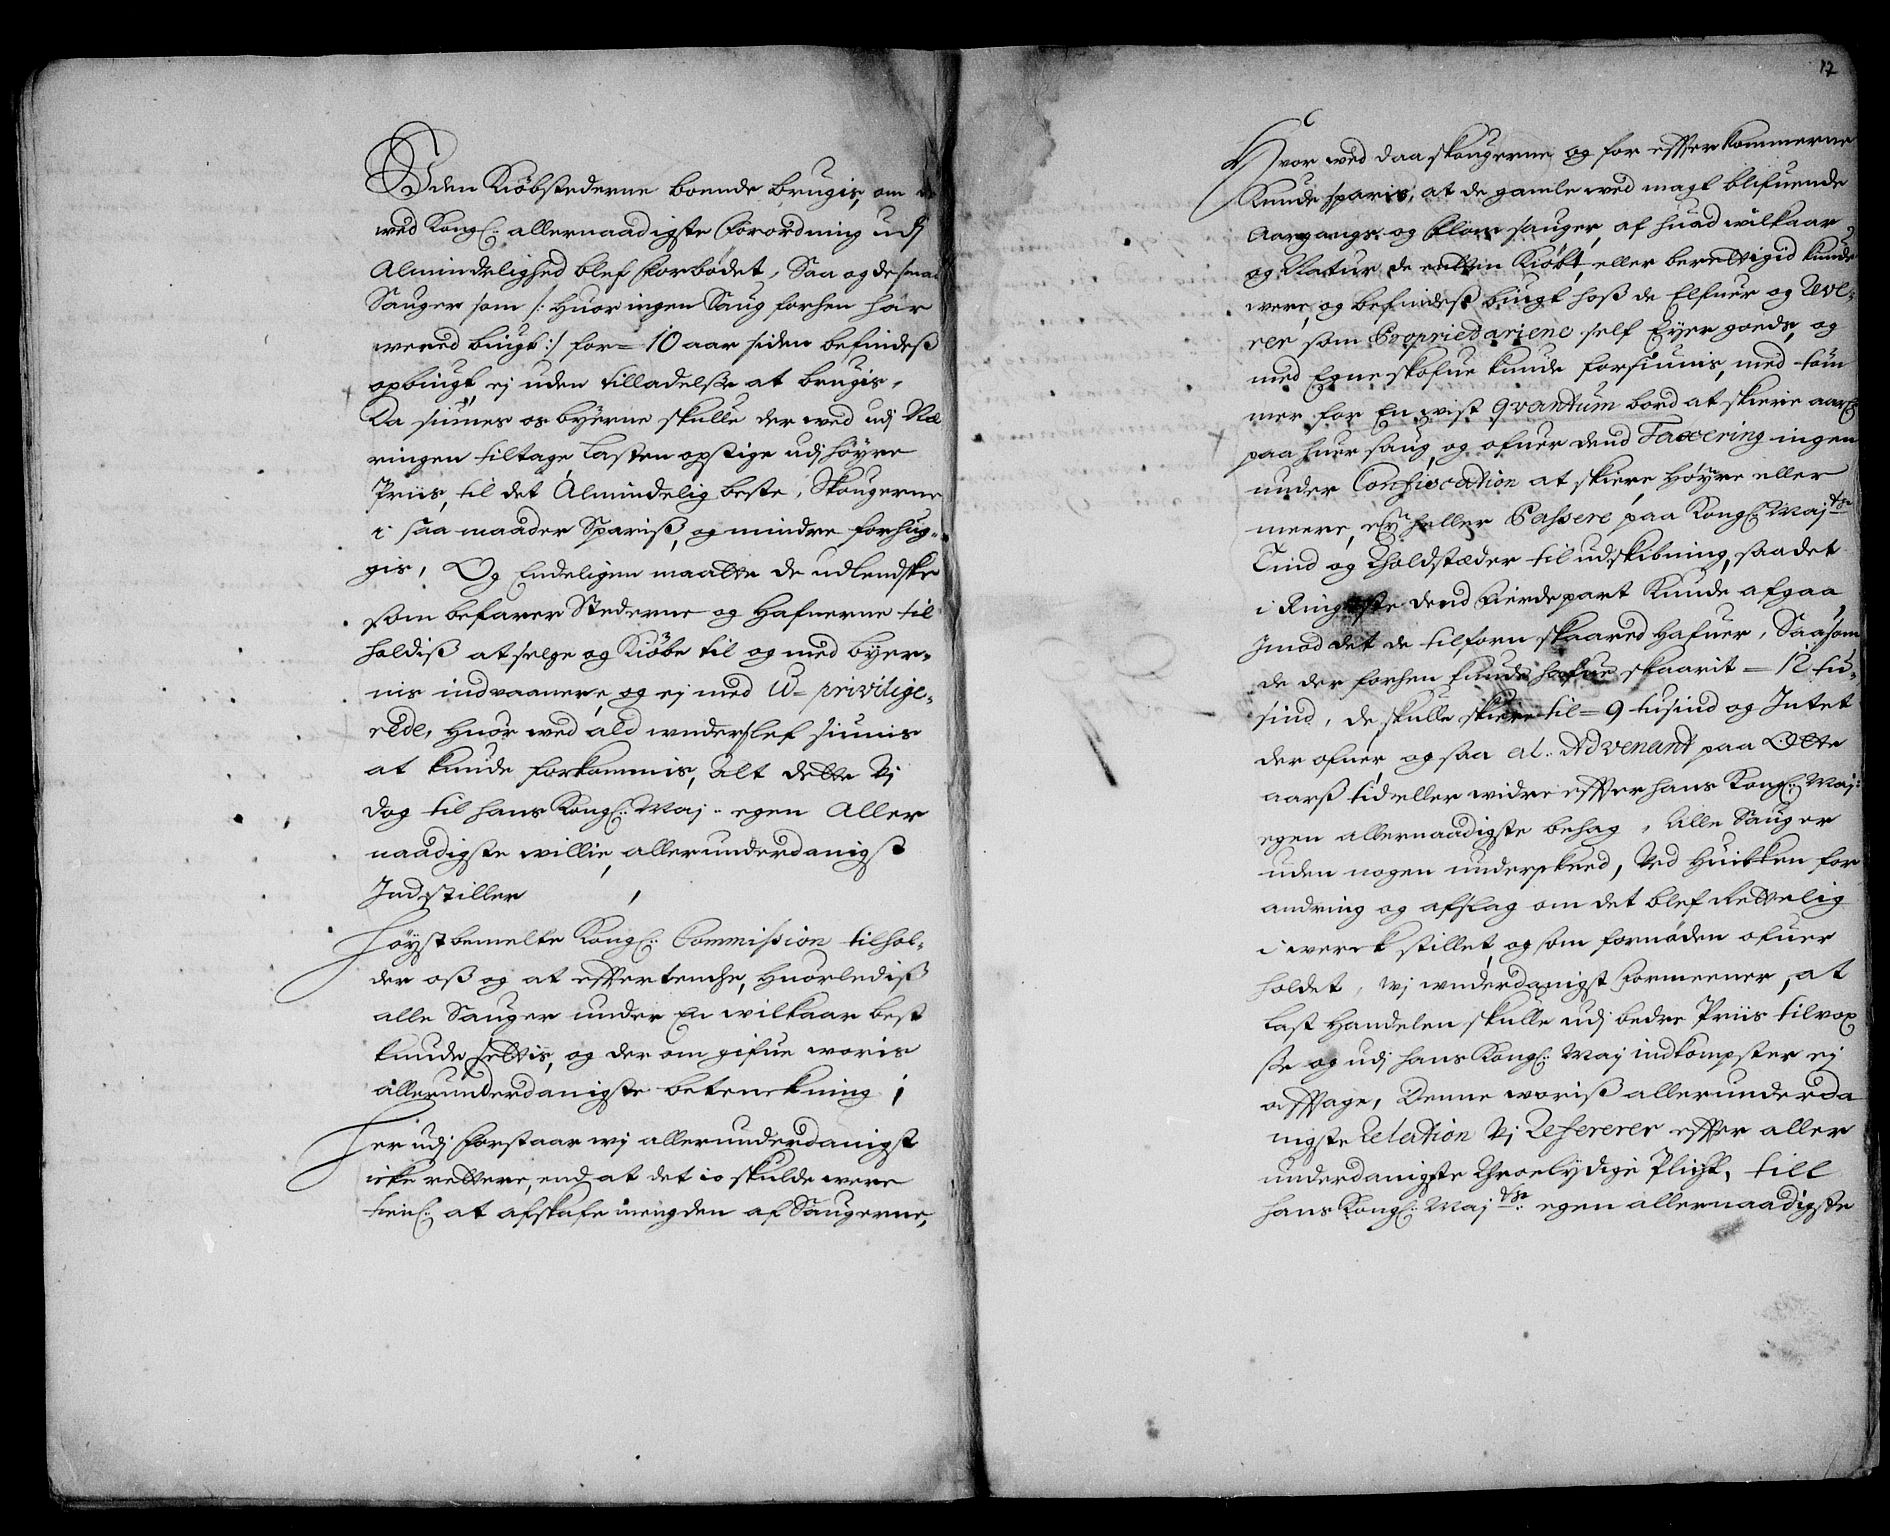 Uden Kiøbstederne boende brugis, om de
wed Kongl: allernaadigste Forordning udj
Almindelighed blef Forbødet, Saa og de smaa
Sauger som /: Huor ingen Saug forhen har
wered bugt :/ for = 10 aar siden befindeß
opbugt, ej uden tilladelse at brugis,
Da siunes os byerne skulle der wed udj Næ
ringen tiltage Lasten opstige udj høyre
Priis, til det Almindelig beste, Skougerne
i saa maader Spariß, og mindre forhug-
gis, Og Endeligen maatte de udlendske
som befarer Stederne og Hafnerne til
holdiß at selge og Kiøbe til og med byer-
nis indvaanere, og ej med U= privilige-
rede, Huor wed ald underslef siunis
at kunde forkommis, alt dette Vj
dog til hans Kongl: Maj: egen Aller
naadigste willie, allerunderdanigst
Indstiller
Høyst bemelte Kongl: Commission tilhol-
der oß og at effertenche, Huorlediß
alle Sauger under En wilkaar best
kunde settis, og der om gifue woris
allerunderdanigste betenckning ;
Her udj forstaar wj allerunderdanigst
icke rettere, end at det jo skulde were
tienl: at afskafe mengden af Saugerne,
17
Hvor wed daa skougerne og for effterkommerne
kunde sparis, at de gamle wed magt blifuende
Aargangs og Flom sauger, af huad wilkaar
og Natur de enten Kiøbt, eller berettigid kunde
were, og befindeß bugt hoß de Elfuer og Reve-
rer som Proprietariene self Eyer goeds, og
med Egne skofue kunde forsiunis, med töm
mer for En wist qvantum bord at skiere aarl:
paa huer saug, og ofuer dend Taxering ingen
under Confiscation at skiere, Høyre eller
meere, ey heller Passere paa Kongl: Maj:ts
Tind og Tholdstæder til udskibning, saadet
i Ringeste dend Fierdepart Kunde afgaa
Imod det de tilforn skaared Hafuer, Saasom
de der forhen kunde hafue skaarit = 12 tu-
sind, de skulle skiere til = 9 tusind og Intet
der ofuer, og saa al: Advenant paa Otte
aarß tid eller widre effter hans Kongl: Maj:
egen allernaadigste behag, Alle Sauger
uden nogen underskeed, Ved Huilken for
andring og afslag om det blef Rettelig
i werck stillet, og som fornøden ofuer
holdet, wj underdanigst Formeener, at
Last Handelen skulle udj bedre Priis tilvox
se og udj hans Kongl: Maj indkompster ej
afftage, Denne woriß allerunderda
nigste Relation Vj Refererer effter aller
underdanigste Throelydige Plight, till
hans Kongl: Maj:ts egen allernaadigste